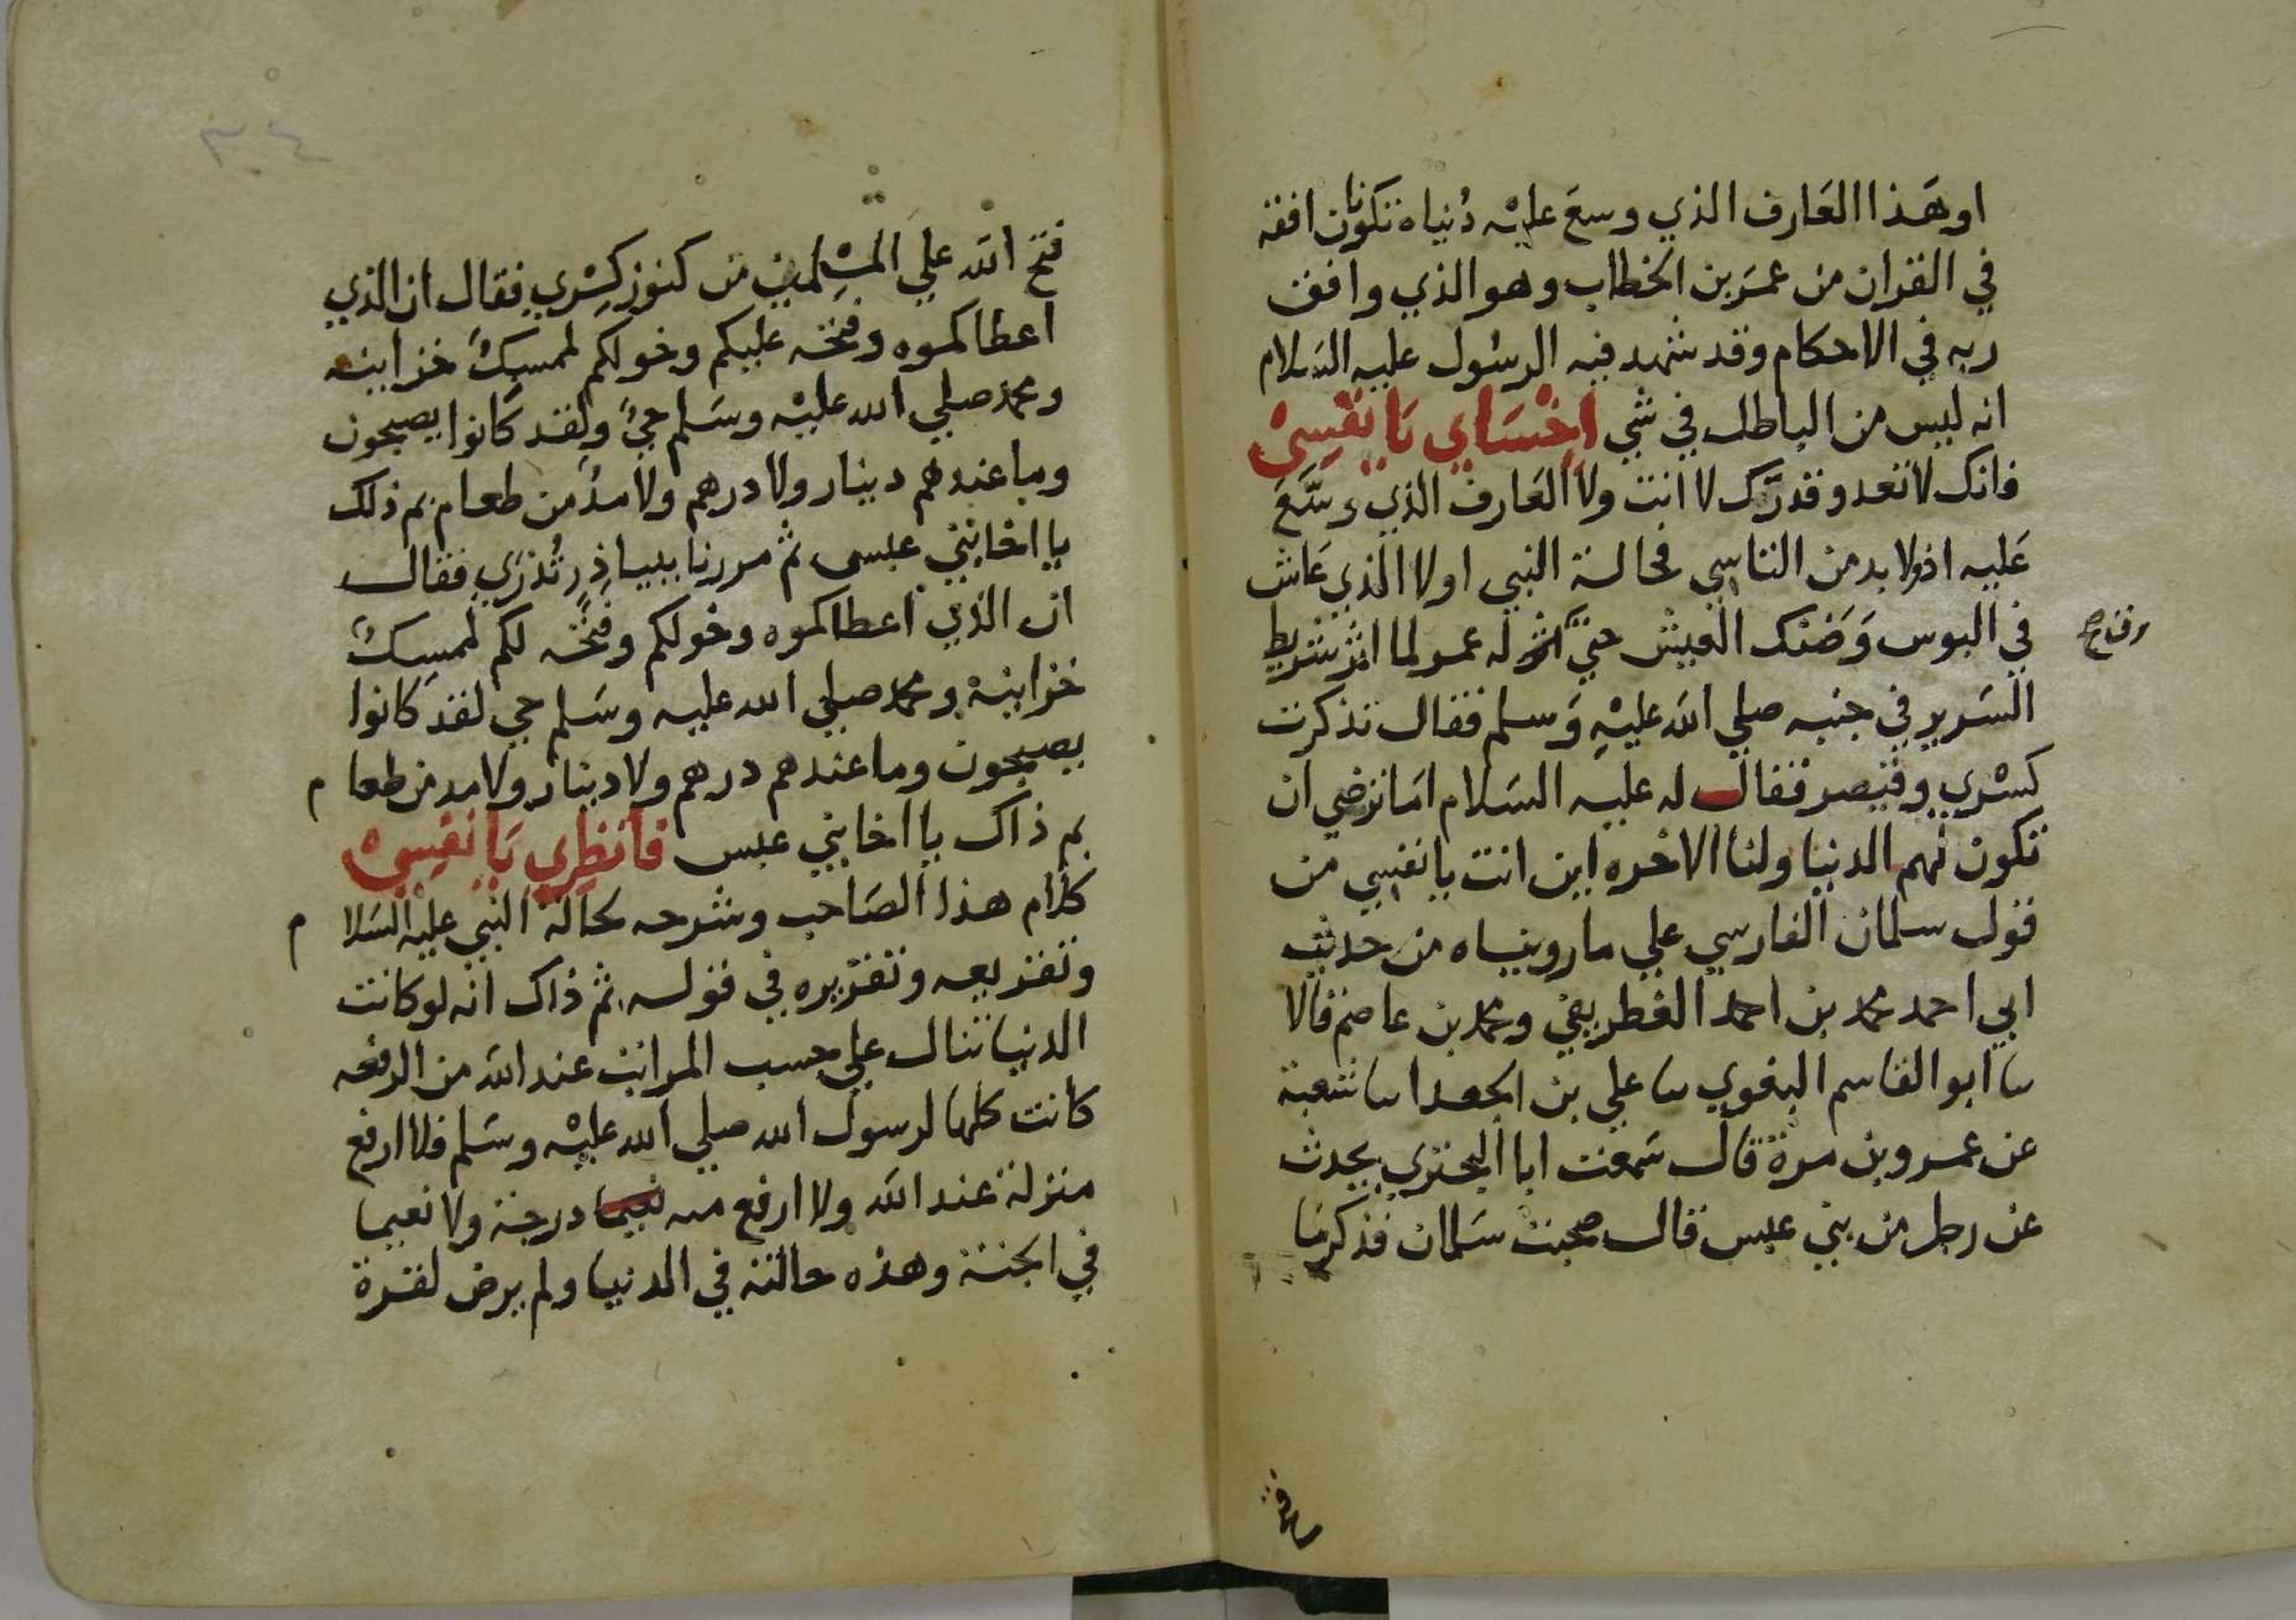 او هَذا العَارف الذي وسعَ عليْه دُنياه تكونا افقه
في القران من عمَر بن الخطاب وهو الذي وافق
ربه في الاحكام وقد شهد فيه الرسُول عليه السَلام
انه ليس من الباطل في شي اخْسَاي يَا نفْسِيْ
فانك لا تعد وقدرَك لا انت ولا العَارف الذي وسَّعَ
عَليه اذ ولا بد من التاسي فحالة النبي اولا الذي عَاش
في البوس وَضنك العيش حتي له عمر لما اثر شريط
السَرير في جنبه صلي الله عليْهِ وَسلم فقال تذكرت
كسْري وقيصر فقال له عليه السَلام امَا ترضي ان
تكون لهم الدنيا ولنا الاخره اين انت يا نفسي من
قول سلمان الفارسي علي ما رويناه من حديث
ابي احمد محمد بن احمد الغطريفي ومحمد بن عاصم قالا
سا ابو القاسم البغوي سا علي بن الجعد اسا شعبة
عن عمرو بن مرة قال سَمعت ابا البختري يحدث
عن رجل من بني عبس قال صحبت سَلمان فذكر ما
فتح
فتح الله علي المسْلمين من كنوز كِسْري فقال ان الذي
اعطاكموه وفتحه عليكم وخولكم لممسِكٌ خزاينه
ومحمد صلي الله عليْه وسَلم حيٌ ولقد كَانوا يصبحون
وما عندهم دينار ولا درهم ولا مدٌ من طعام بم ذلك
يا اخا بني عبسى ثم مررنا ببياذِرِ تُذرَي فقال
ان الذي اعطاكموه وخولكم وفتحَه لكم لممسِكٌ
خزاينهْ ومحمد صلي الله عليه وسَلم حي لقد كانوا
يصبحون وما عندهم درهم ولا دينار ولا مد من طعام
بم ذاك يا اخا بني عبس فانظِري يَا نفِسِيْ
كلام هذا الصَاحب وشرحه لحالة النبي عليه السَلام
وتفريعه وتقريره في قوله ثم ذاك انه لو كانت
الدنيا تنال علي حسب المراتب عند الله من الرفعه
كانت كلها لرسول الله صلي الله عليْه وسَلم فلا ارفع
منزلة عند الله ولا ارفع منه نعيما درجة ولا نعيما
في الجنة وهذه حالته في الدنيا ولم يرض لقرة